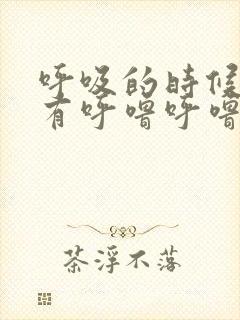 呼吸的時候
有呼嚕呼嚕
茶浮不落